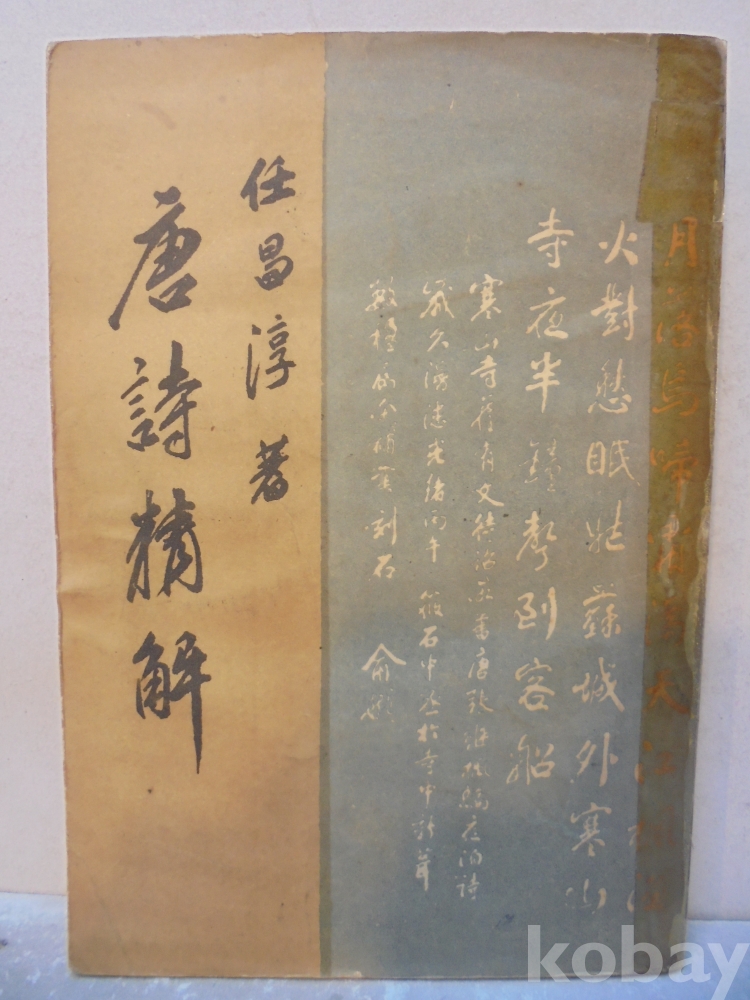 月落烏啼霜滿天江楓漁
火對愁眠姑蘇城外寒山
寺夜半鐘聲到客船
寒山寺舊有文待詔所書唐張繼楓橋夜泊詩
歲久漫漶光緒丙午筱石中丞於寺中新葺
數楹屬余補書刻石 俞樾
任昌淳 著
唐詩精解
kobay